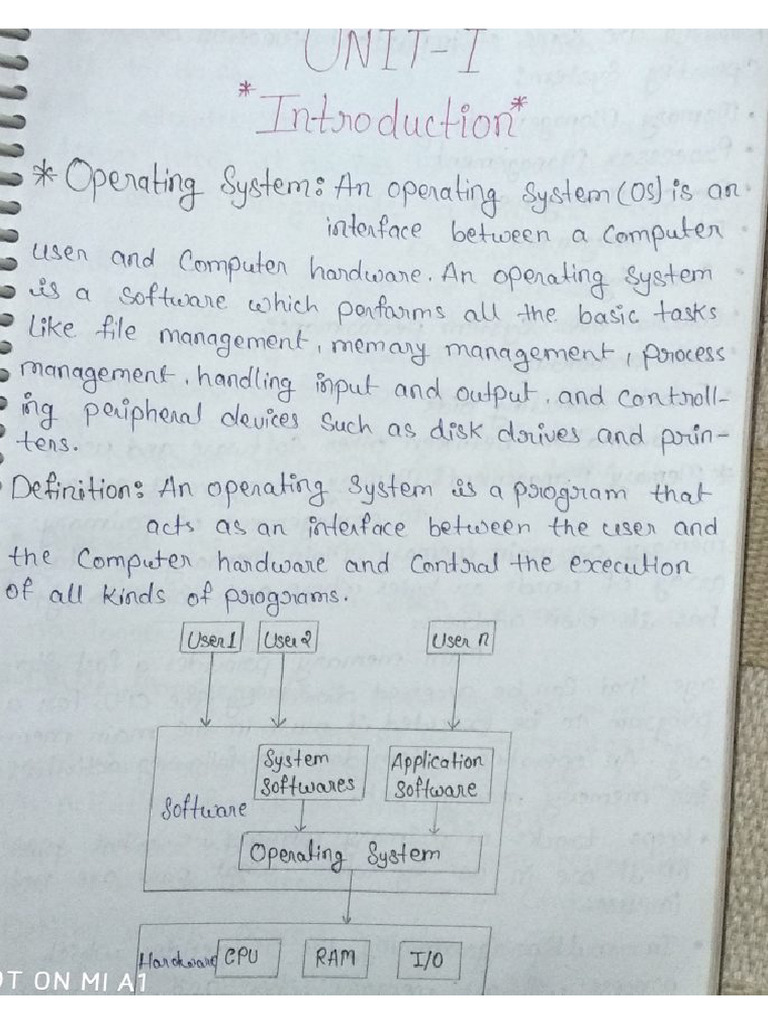 UNIT-I
*Introduction*
* Operating System: An operating System (OS) is an
interface between a Computer
user and Computer hardware. An operating System
is a Software which performs all the basic tasks
like file management, memory management, process
management, handling input and output, and controll-
ing peripheral devices such as disk drives and prin-
ters.
Definition: An operating System is a program that
acts as an interface between the user and
the Computer hardware and Control the execution
of all kinds of programs.
User 1 User 2 User n
System Application
Softwares Software
Software
Operating System
Hardware CPU RAM I/O
OT ON MI A1